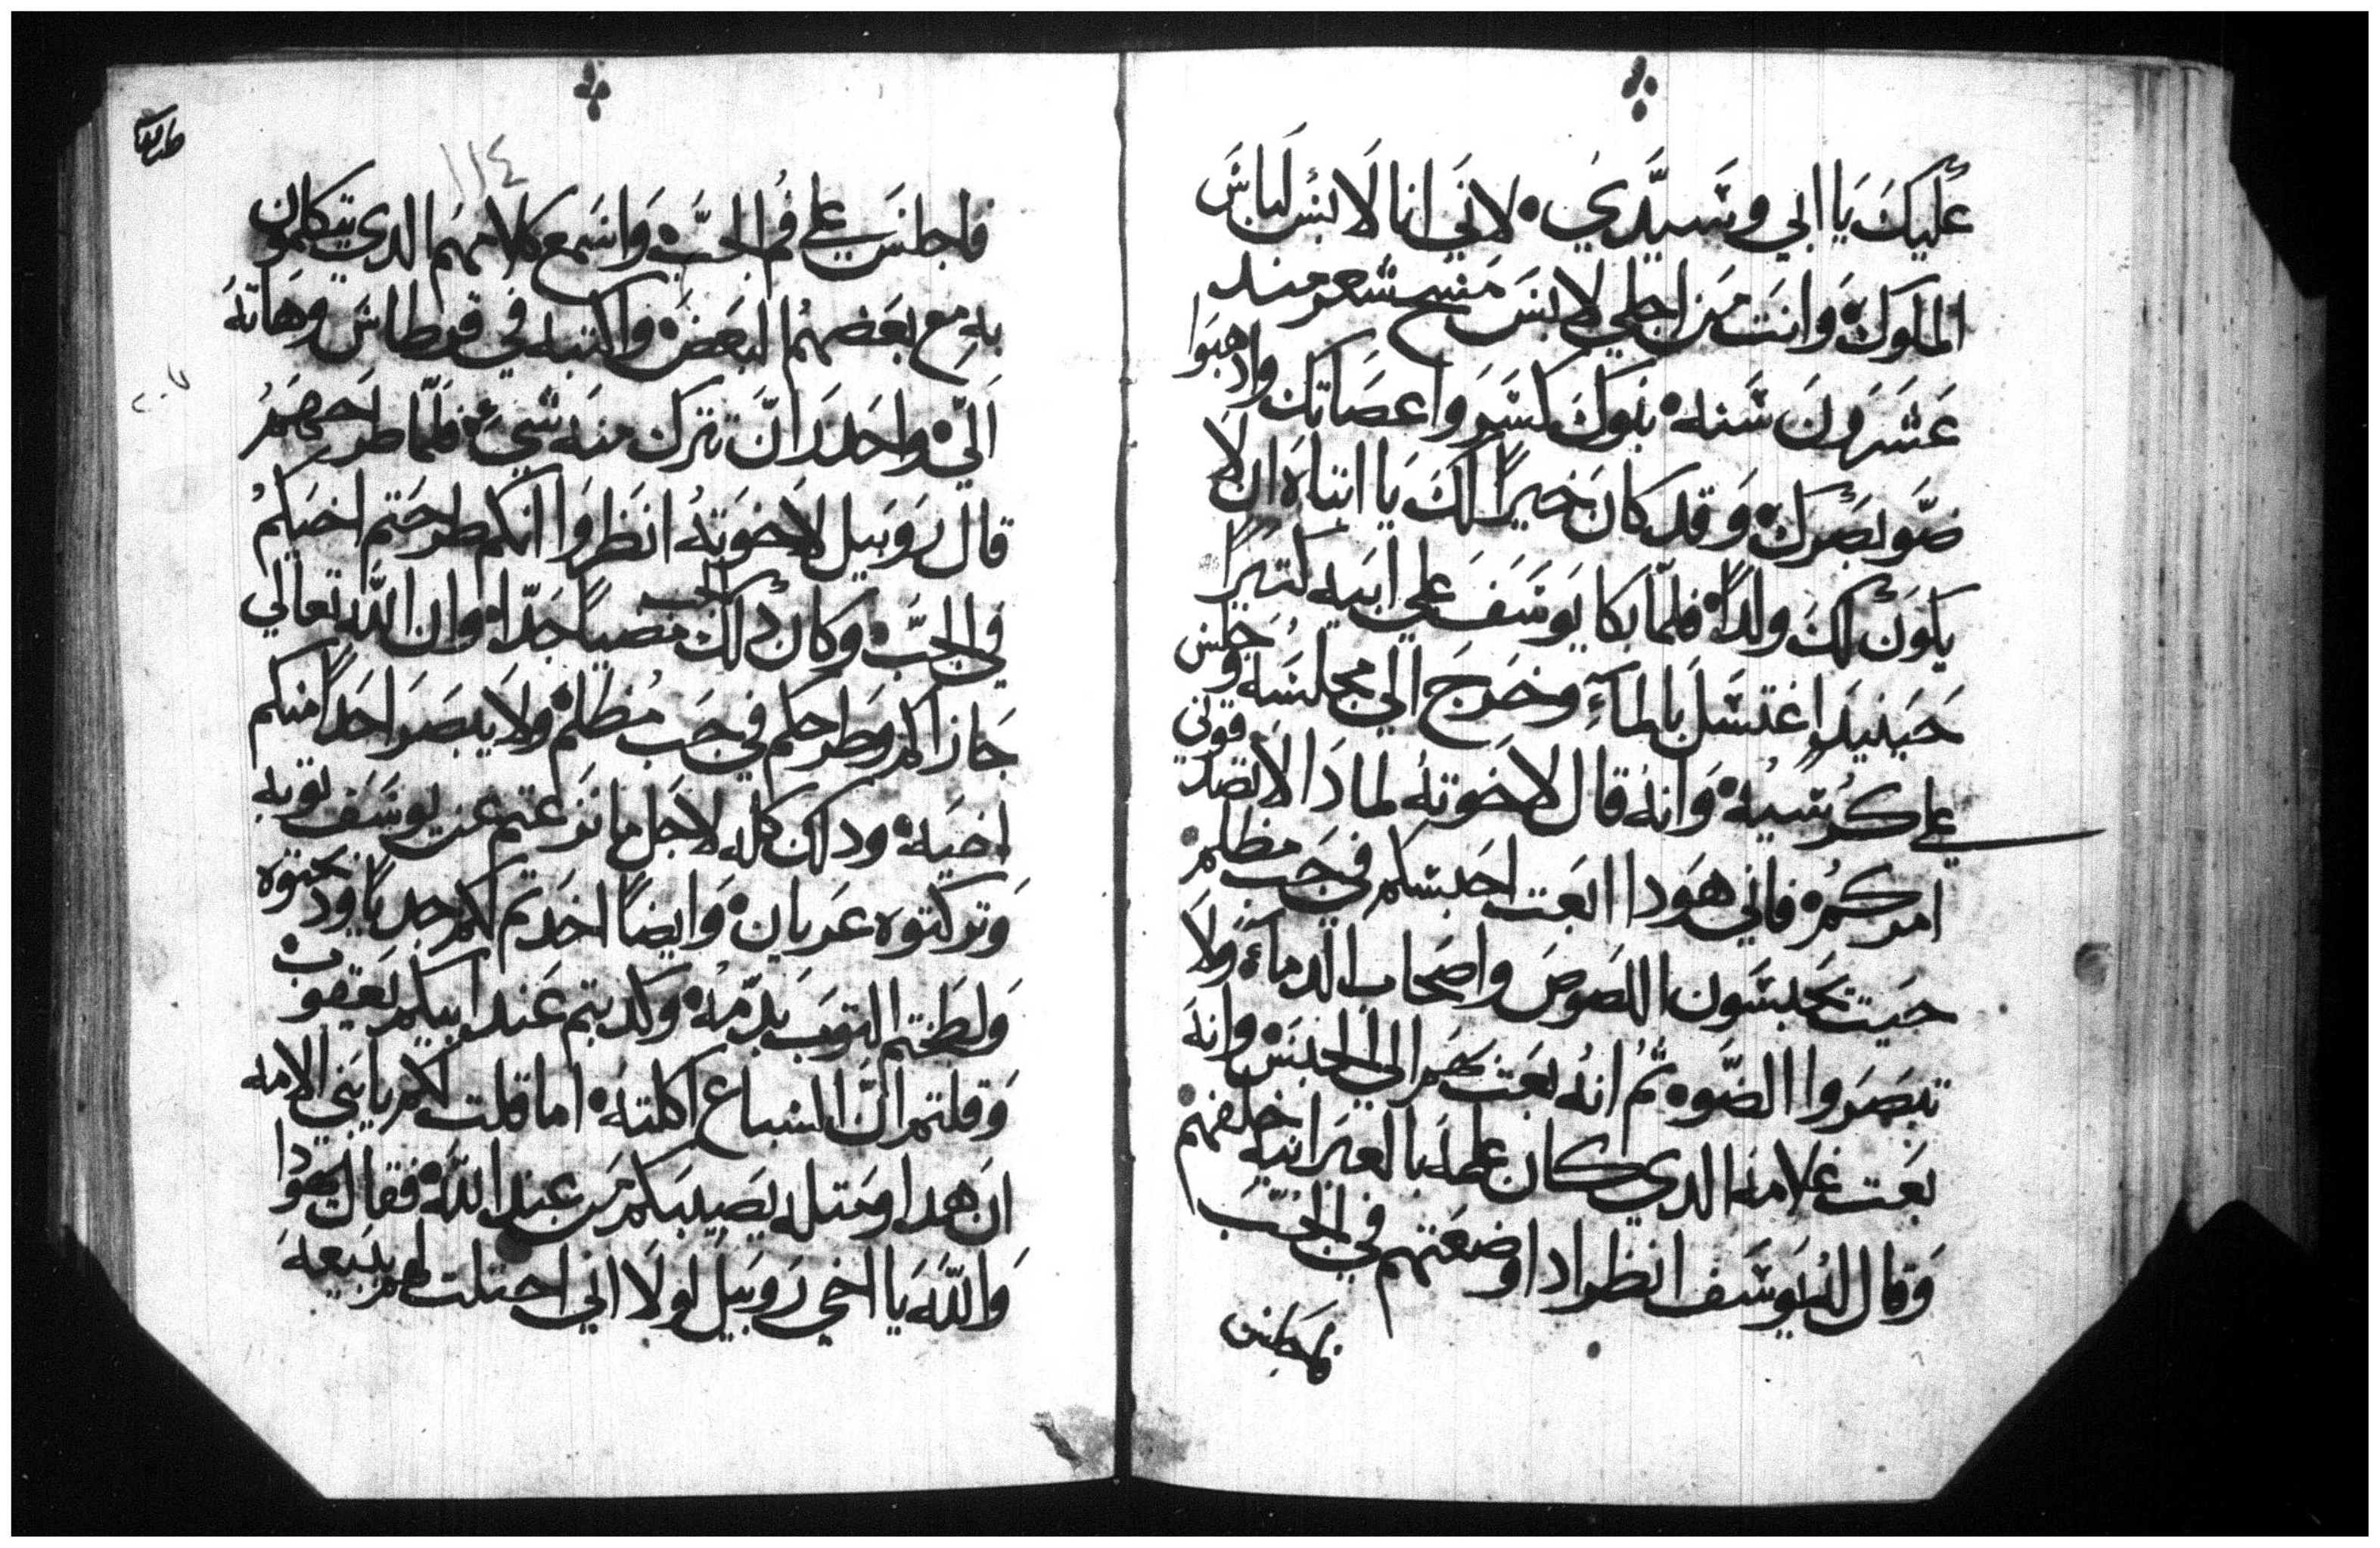 عليك يا ابي وسيدي لاني انا لابس لباس
الملوك وانت من اجلي لابس مسح شعر مند
عشرون سنه بنوك كسروا عصاتك وادهبوا
ضو بصرك وقد كان خيرًا لك يا ابتاه ان لا
يكون لك ولدًا فلما بكا يوسف علي ابيه كتيرًا
حينيدٍ اغتسل بالمآء وخرج الي مجلسه وجلس
علي كرسيه وانه قال لاخوته لمادا لا تصدقوني
امركم فاني هودا ابعت احبسكم في جب مظلم
حيت تحبسون اللصوص واصحاب الدماء ولا
تبصروا الضوه تم انه بعت بهم الي الحبس وانه
بعت غلامه الدي كان علمه بالعبرانيه خلفهم
وقال له يوسف انظر ادا وضعتهم في الجب
فاجلس
١١٤
فاجلس علي فم الجب واسمع كلامهم الدي يتكلمون
به مع بعضهم البعض واكتبه في قرطاس وهاته
الّي واحدر ان تترك منه شيء فلما طرحهم
قال روبيل لاخوته انظروا انكم طرحتم اخيكم
في الجب وكان دلك الجب مضيًا جدًا وان الله تعالي
جازاكم وطرحكم في جب مظلم ولا يبصر احدًا منكم
اخيه ودلك كله لاجل ما نزعتم عن يوسف توبه
وتركتوه عريان وايضًا اخدتم لكم جديًا ودبحتوه
ولطختم التوب بدمه وكدبتم عند ابيكم يعقوب
وقلتم ان السباع اكلته اما قلت لكم يا بني الامه
ان هدا ومتله يصيبكم من عند الله فقال يهودا
والله يا اخي روبيل لولا اني احتلت لهم ببيعه